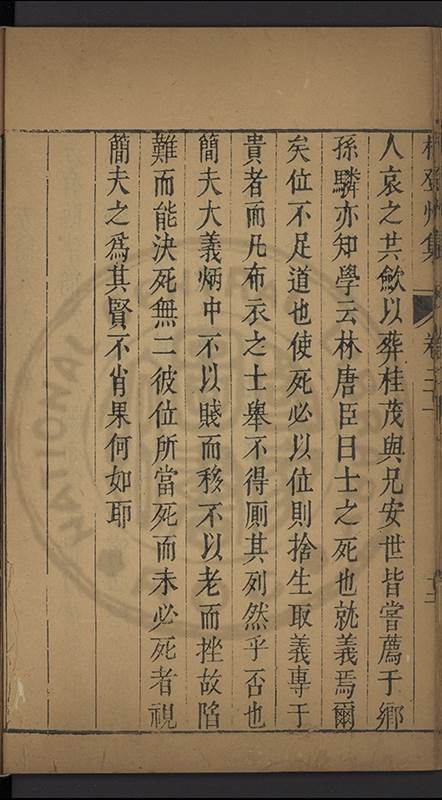 林登州集 卷二十 十二
人哀之共斂以葬桂茂與兄安世皆嘗薦于鄉
孫驎亦知學云林唐臣曰士之死也就義焉爾
矣位不足道也使死必以位則捨生取義專于
貴者而凡布衣之士舉不得厠其列然乎否也
簡夫大義炳中不以賤而移不以老而挫故陷
難而能決死無二彼位所當死而未必死者視
簡夫之爲其賢不肖果何如耶
NATIONAL